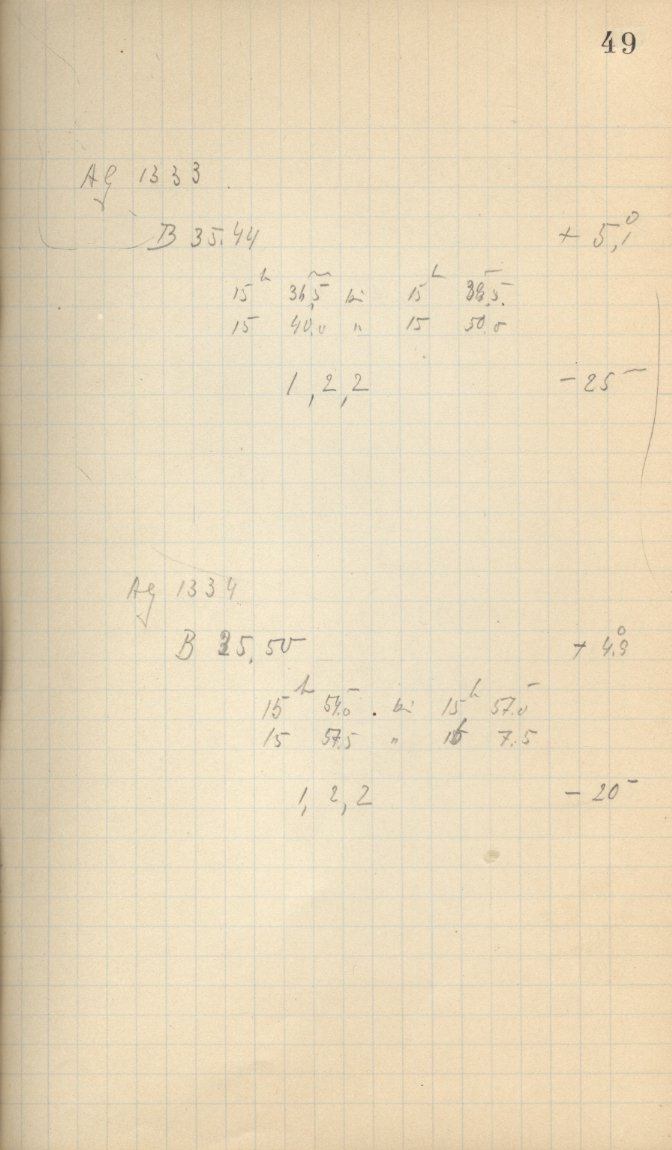 49
AG 1333
B 35.44 + 5,1°
15h 36,5m bis 15h 38.5m
15 40.0 " 15 50.0
1, 2, 2 - 25m
AG 1334
B 35.50 + 4.9°
15h 54.0m bis 15h 57.0m
15 57.5 " 16 7.5
1, 2, 2 - 20m